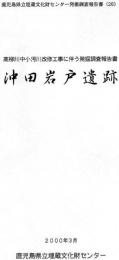 鹿児島県立埋蔵文化財センター発掘調査報告書(26)
高柳川中小河川改修工事に伴う発掘調査報告書
沖田岩戸遺跡
2000年3月
鹿児島県立埋蔵文化財センター